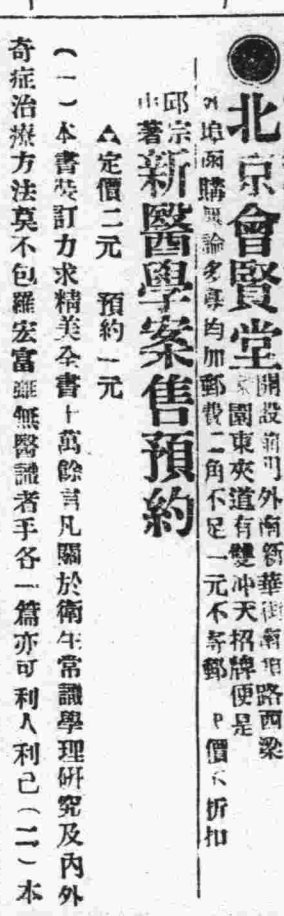 北京會賢堂
開設前門外南新華街南頭路西梁
家園東夾道有雙冲天招牌便是
外埠函購無論多寡均加郵費二角不足一元不寄郵 價不折扣
邱宗山著新醫學案售預約
△定價二元 預約一元
(一)本書裝訂力求精美全書十萬餘言凡關於衛生常識學理研究及內外
奇症治療方法莫不包羅宏富雖無醫識者手各一篇亦可利人利己(二)本